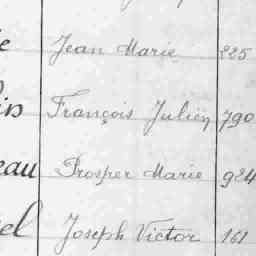 e Jean Marie 225
in François Julien 790
eau Prosper Marie 924
el Joseph Victor 161